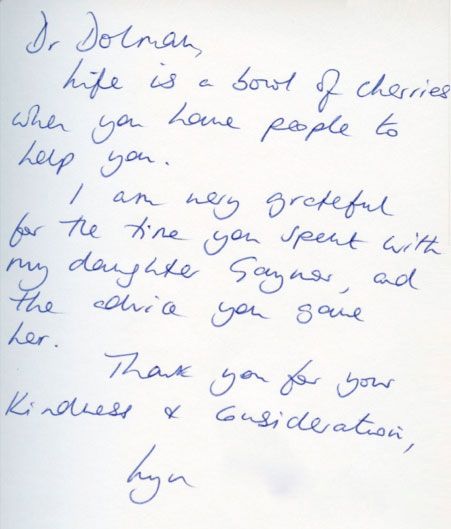 Dr Dolman,
Life is a bowl of cherries
when you have people to
help you.
I am very grateful
for the time you spent with
my daughter Gaynor, and
the advice you gave
her.
Thank you for your
Kindness & Consideration,
Lyn